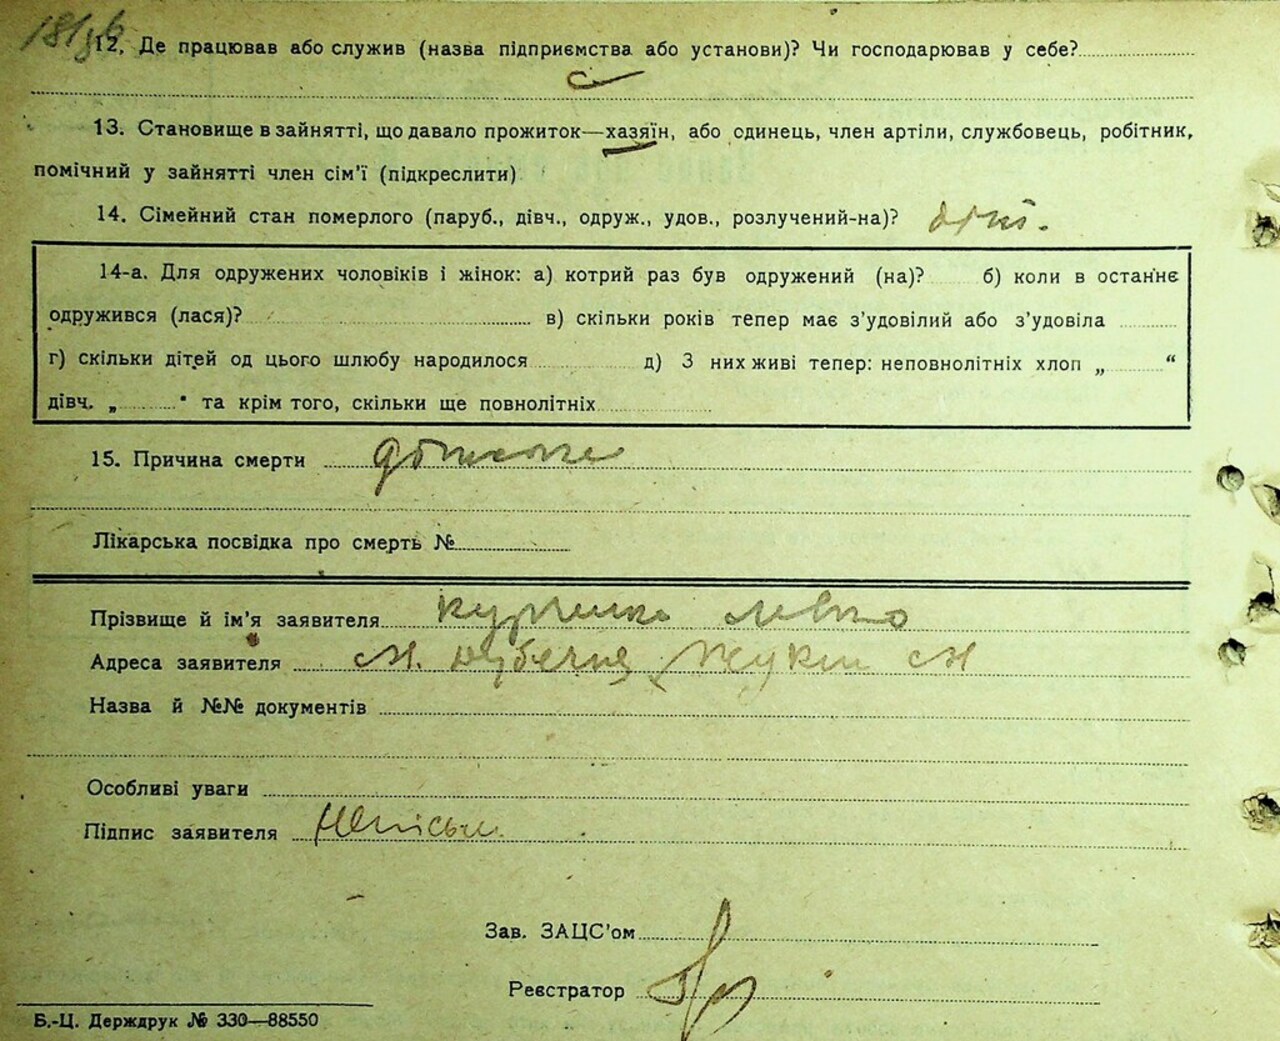 12. Де працював або служив (назва підприємства або установи)? Чи господарював у себе?
13. Становище в зайнятті, що давало прожиток—хазяїн, або одинець, член артіли, службовець, робітник,
помічний у зайнятті член сім’ї (підкреслити)
14. Сімейний стан померлого (паруб., дівч., одруж., удов., розлучений-на)?
14-а. Для одружених чоловіків і жінок: а) котрий раз був одружений (на)? б) коли в останнє
одружився (лася)? в) скільки років тепер має з’удовілий або з’удовіла
г) скільки дітей од цього шлюбу народилося д) З них живі тепер: неповнолітніх хлоп „ “
дівч. „ “ та крім того, скільки ще повнолітніх
15. Причина смерти
Лікарська посвідка про смерть №
Прізвище й ім’я заявителя Левко
Адреса заявителя м.
Назва й №№ документів
Особливі уваги
Підпис заявителя
Зав. ЗАЦС’ом
Реєстратор
Б.-Ц. Держдрук № 330—88550